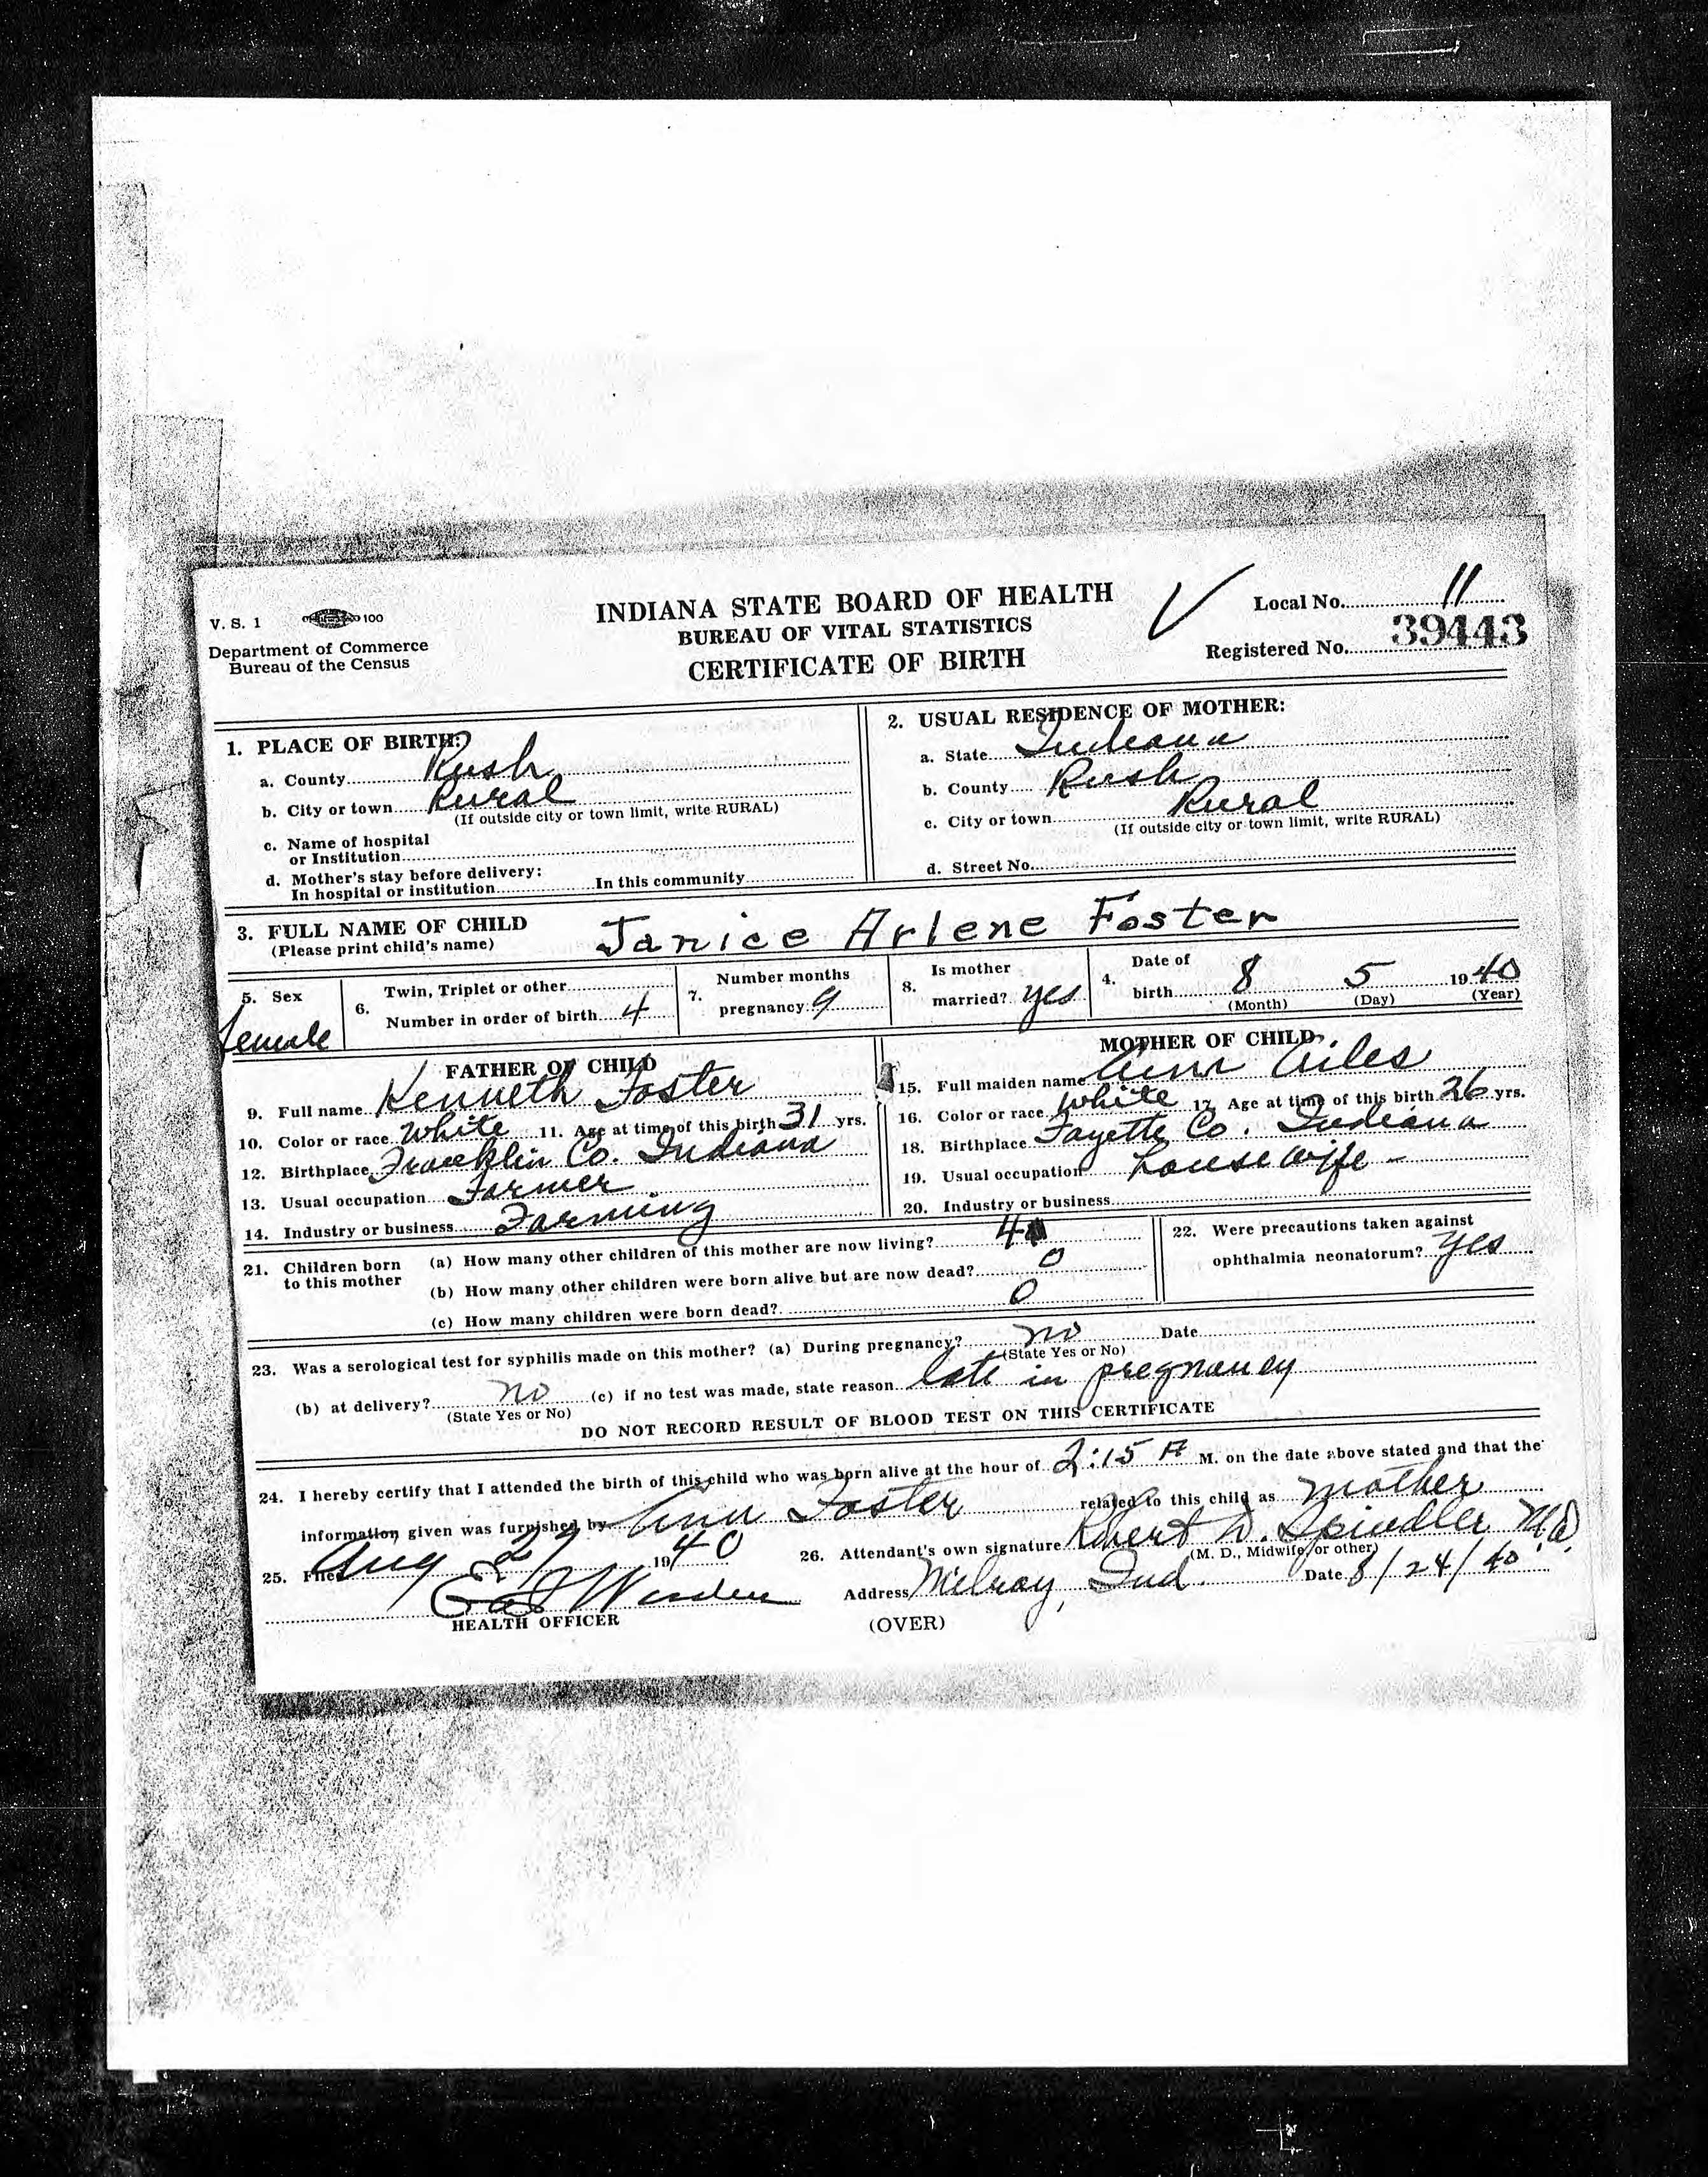 V. S. 1 100
Department of Commerce
Bureau of the Census
INDIANA STATE BOARD OF HEALTH
BUREAU OF VITAL STATISTICS
CERTIFICATE OF BIRTH
Local No. 11
Registered No. 39443
1. PLACE OF BIRTH:
a. County Rush
b. City or town Rural
(If outside city or town limit, write RURAL)
c. Name of hospital
or Institution
d. Mother's stay before delivery:
In hospital or institution In this community
2. USUAL RESIDENCE OF MOTHER:
a. State Indiana
b. County Rush
c. City or town Rural
(If outside city or town limit, write RURAL)
d. Street No.
3. FULL NAME OF CHILD Janice Arlene Foster
(Please print child's name)
5. Sex
female
6. Twin, Triplet or other
Number in order of birth 4
7. Number months
pregnancy 9
8. Is mother
married? yes
4. Date of
birth 8 5 1940
(Month) (Day) (Year)
FATHER OF CHILD
9. Full name Kenneth Foster
10. Color or race White 11. Age at time of this birth 31 yrs.
12. Birthplace Franklin Co. Indiana
13. Usual occupation Farmer
14. Industry or business Farming
MOTHER OF CHILD
15. Full maiden name Ann Ailes
16. Color or race White 17. Age at time of this birth 26 yrs.
18. Birthplace Fayette Co. Indiana
19. Usual occupation housewife -
20. Industry or business
21. Children born
to this mother
(a) How many other children of this mother are now living? 4
(b) How many other children were born alive but are now dead? 0
(c) How many children were born dead? 0
22. Were precautions taken against
ophthalmia neonatorum? yes
23. Was a serological test for syphilis made on this mother? (a) During pregnancy? no Date
(State Yes or No)
(b) at delivery? no (c) if no test was made, state reason late in pregnancy
(State Yes or No)
DO NOT RECORD RESULT OF BLOOD TEST ON THIS CERTIFICATE
24. I hereby certify that I attended the birth of this child who was born alive at the hour of 2:15 A M. on the date above stated and that the
information given was furnished by Ann Foster related to this child as mother
25. Filed Aug 27 1940
HEALTH OFFICER
26. Attendant's own signature Robert D. Spindler M.D.
(M. D., Midwife, or other)
Address Milroy, Ind. Date 8/24/40
(OVER)